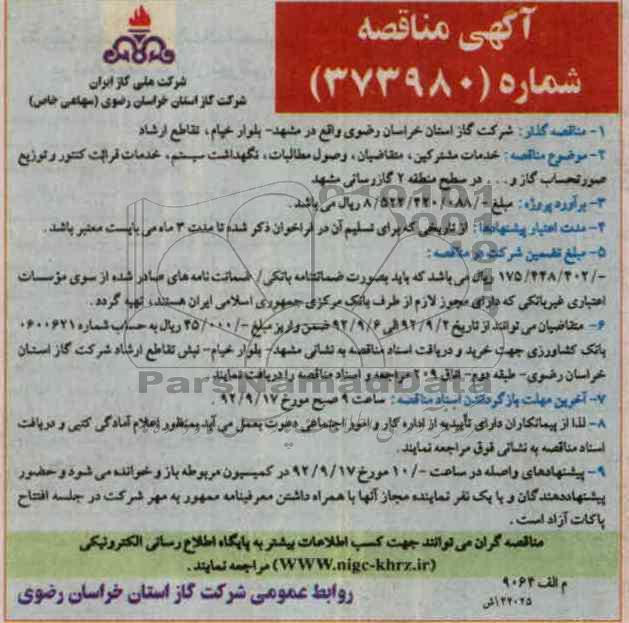 آگهی مناقصه
شماره (۳۷۳۹۸۰)
شرکت ملی گاز ایران
شرکت گاز استان خراسان رضوی (سهامی خاص)
۱- مناقصه گذار: شرکت گاز استان خراسان رضوی واقع در مشهد- بلوار خیام، تقاطع ارشاد
۲- موضوع مناقصه: خدمات مشترکین، متقاضیان، وصول مطالبات، نگهداشت سیستم، خدمات قرائت کنتور و توزیع
صورتحساب گاز و... در سطح منطقه ۲ گازرسانی مشهد
۳- برآورد پروژه: مبلغ -/۸/۵۲۲/۴۲۰/۰۸۸ ریال می باشد.
۴- مدت اعتبار پیشنهادها: از تاریخی که برای تسلیم آن در فراخوان ذکر شده تا مدت ۳ ماه می بایست معتبر باشد.
۵- مبلغ تضمین شرکت در مناقصه:
-/۱۷۵/۴۴۸/۴۰۲ ریال می باشد که باید بصورت ضمانتنامه بانکی/ ضمانت نامه های صادر شده از سوی مؤسسات
اعتباری غیربانکی که دارای مجوز لازم از طرف بانک مرکزی جمهوری اسلامی ایران هستند، تهیه گردد.
۶- متقاضیان می توانند از تاریخ ۹۲/۹/۲ الی ۹۲/۹/۶ ضمن واریز مبلغ -/۴۵/۰۰۰ ریال به حساب شماره ۰۶۰۰۶۲۱
بانک کشاورزی جهت خرید و دریافت اسناد مناقصه به نشانی مشهد- بلوار خیام- نبش تقاطع ارشاد شرکت گاز استان
خراسان رضوی- طبقه دوم- اتاق ۲۰۹ مراجعه و اسناد مناقصه را دریافت نمایند.
۷- آخرین مهلت بازگرداندن اسناد مناقصه: ساعت ۹ صبح مورخ ۹۲/۹/۱۷.
۸- لذا از پیمانکاران دارای تأییدیه از اداره کار و امور اجتماعی دعوت بعمل می آید بمنظور اعلام آمادگی کتبی و دریافت
اسناد مناقصه به نشانی فوق مراجعه نمایند.
۹- پیشنهادهای واصله در ساعت -/۱۰ مورخ ۹۲/۹/۱۷ در کمیسیون مربوطه باز و خوانده می شود و حضور
پیشنهاددهندگان و یا یک نفر نماینده مجاز آنها با همراه داشتن معرفینامه ممهور به مهر شرکت در جلسه افتتاح
پاکات آزاد است.
مناقصه گران می توانند جهت کسب اطلاعات بیشتر به پایگاه اطلاع رسانی الکترونیکی
(WWW.nigc-khrz.ir) مراجعه نمایند.
م الف ۹۰۶۴
۱۲۲۰۲۵ش
روابط عمومی شرکت گاز استان خراسان رضوی
ParsNamadData